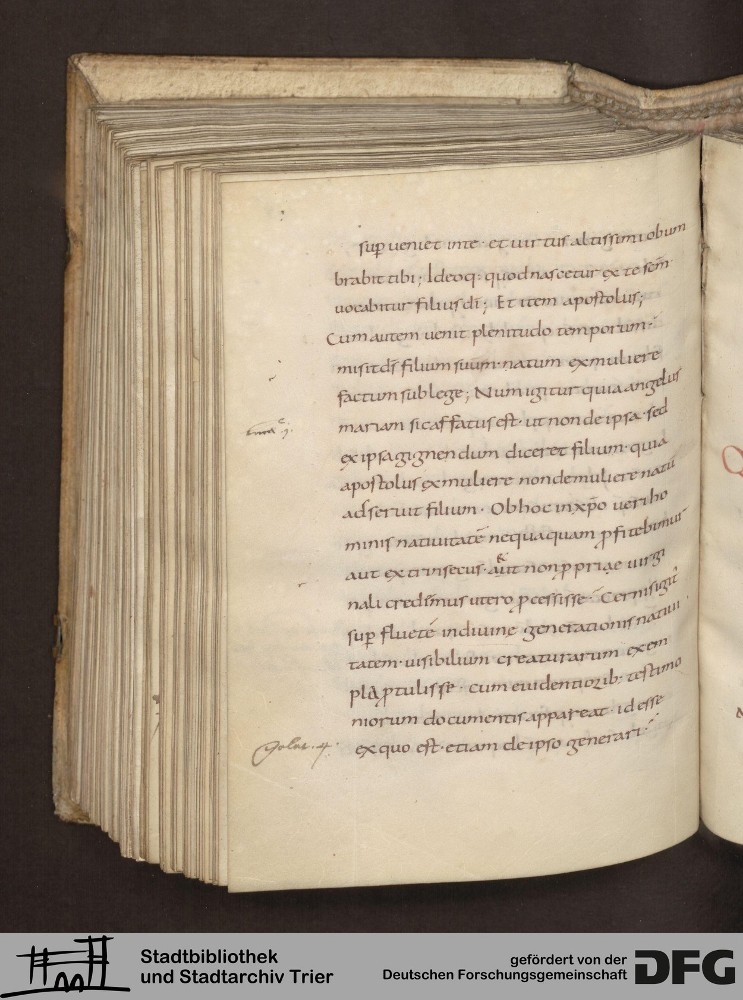 sup ueniet inte· et uirtus altissimi obum
brabit tibi; Ideoq: quod nascetur ex te scm̄
uocabitur filius dī; Et item apostolus;
Cum autem uenit plenitudo temporum·
misit ds̄ filium suum· natum ex muliere
factum sub lege; Num igitur quia angelus
mariam sic affatus est· ut non de ipsa· sed
ex ipsa gignendum diceret filium· quia
apostolus ex muliere non de muliere natū
adseruit filium· Ob hoc in xp̄o ueri ho
minis natiuitatē nequaquam pfitebimur
aut extrinsecus· aut non ppriae uirgi
nali credimus utero pcessisse· Cernis igit̄
sup fluetē indiuine generationis natiui
tatem· uisibilium creaturarum exem
pla ptulisse· cum euidentiorib: testimo
niorum documentis appareat· id esse
ex quo est· etiam de ipso generari·
galat. 4.
Stadtbibliothek
und Stadtarchiv Trier
gefördert von der
Deutschen Forschungsgemeinschaft
DFG